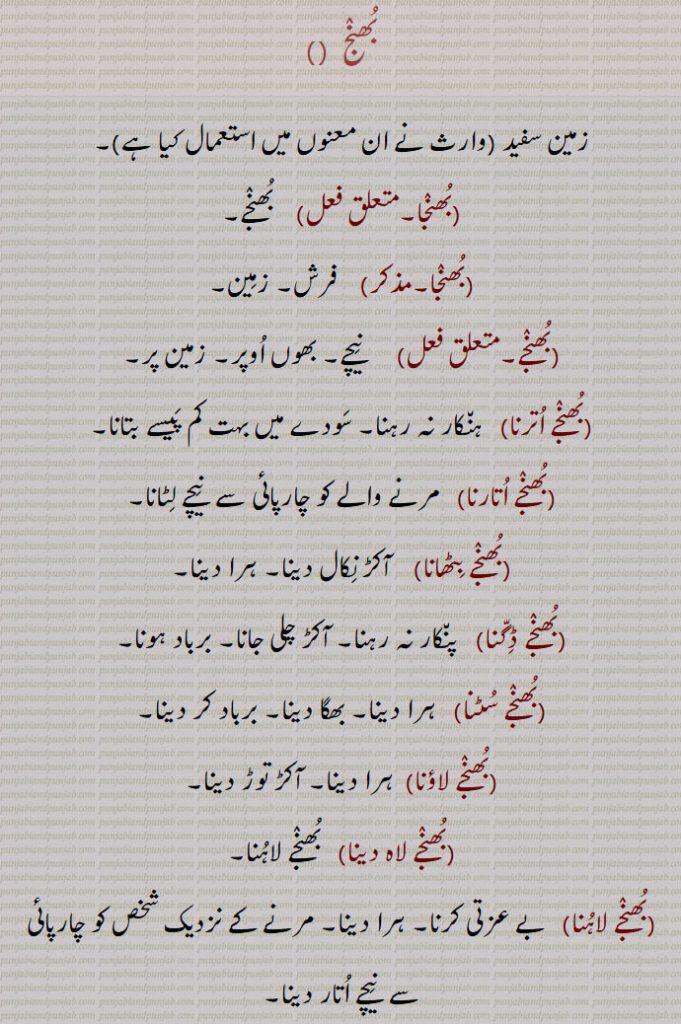 بُھنْج ()
زمین سفید (وارث نے ان معنوں میں استعمال کیا ہے)۔
(بُھنْجا۔ متعلق فعل) بُھنْجے۔
(بُھنْجا۔ مذکر) فرش۔ زمِین۔
(بُھنْجے۔ متعلق فعل) نِیچے۔ بھوں اُوپر۔ زمین پر۔
(بُھنْجے اُترنا) ہنّکار نہ رہنا۔ سَودے میں بہت کم پَیسے بتانا۔
(بُھنْجے اُتارنا) مرنے والے کو چارپائی سے نیچے لِٹانا۔
(بُھنْجے بِٹھانا) آکڑ نِکال دینا۔ ہرا دینا۔
(بُھنْجے ڈِگّنا) ہنّکار نہ رہنا۔ آکڑ چلی جانا۔ برباد ہونا۔
(بُھنْجے سُٹنا) ہرا دینا۔ بھگا دینا۔ برباد کر دینا۔
(بُھنْجے لاؤنا) ہرا دینا۔ آکڑ توڑ دینا۔
(بُھنْجے لاہ دینا) بُھنْجے لاہُنا۔
(بُھنْجے لاہُنا) بے عزتی کرنا۔ ہرا دینا۔ مرنے کے نزدیک شخص کو چارپائی
سے نیچے اُتار دینا۔